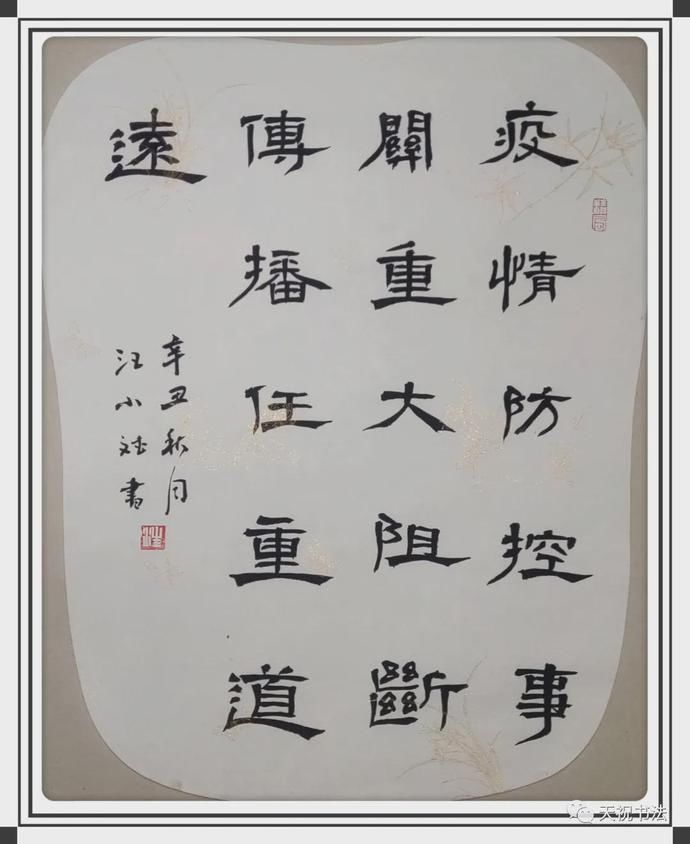 疫情防控事
關重大阻斷
傳播任重道
遠
辛丑秋月
汪小斌書
天祝书法